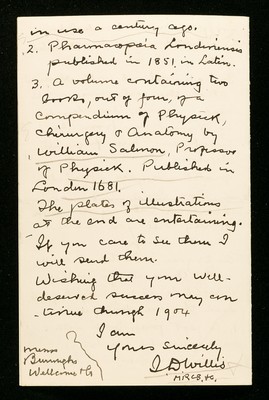 in use a century ago.
2. Pharmacopœia Londinensis
published in 1851, in Latin.
3. A volume containing two
books, out of four, of a
compendium of Physick,
chirurgery & Anatomy by
William Salmon, Professor
of Physick. Published in
London 1681.
The plates of illustrations
at the end are entertaining.
If you care to see them I
will send them.
Wishing that your well-
deserved success may con-
tinue through 1904
I am
Yours sincerely
I. D. Willis
MRCS, &c.
Messrs
Burroughs
Wellcome & Co